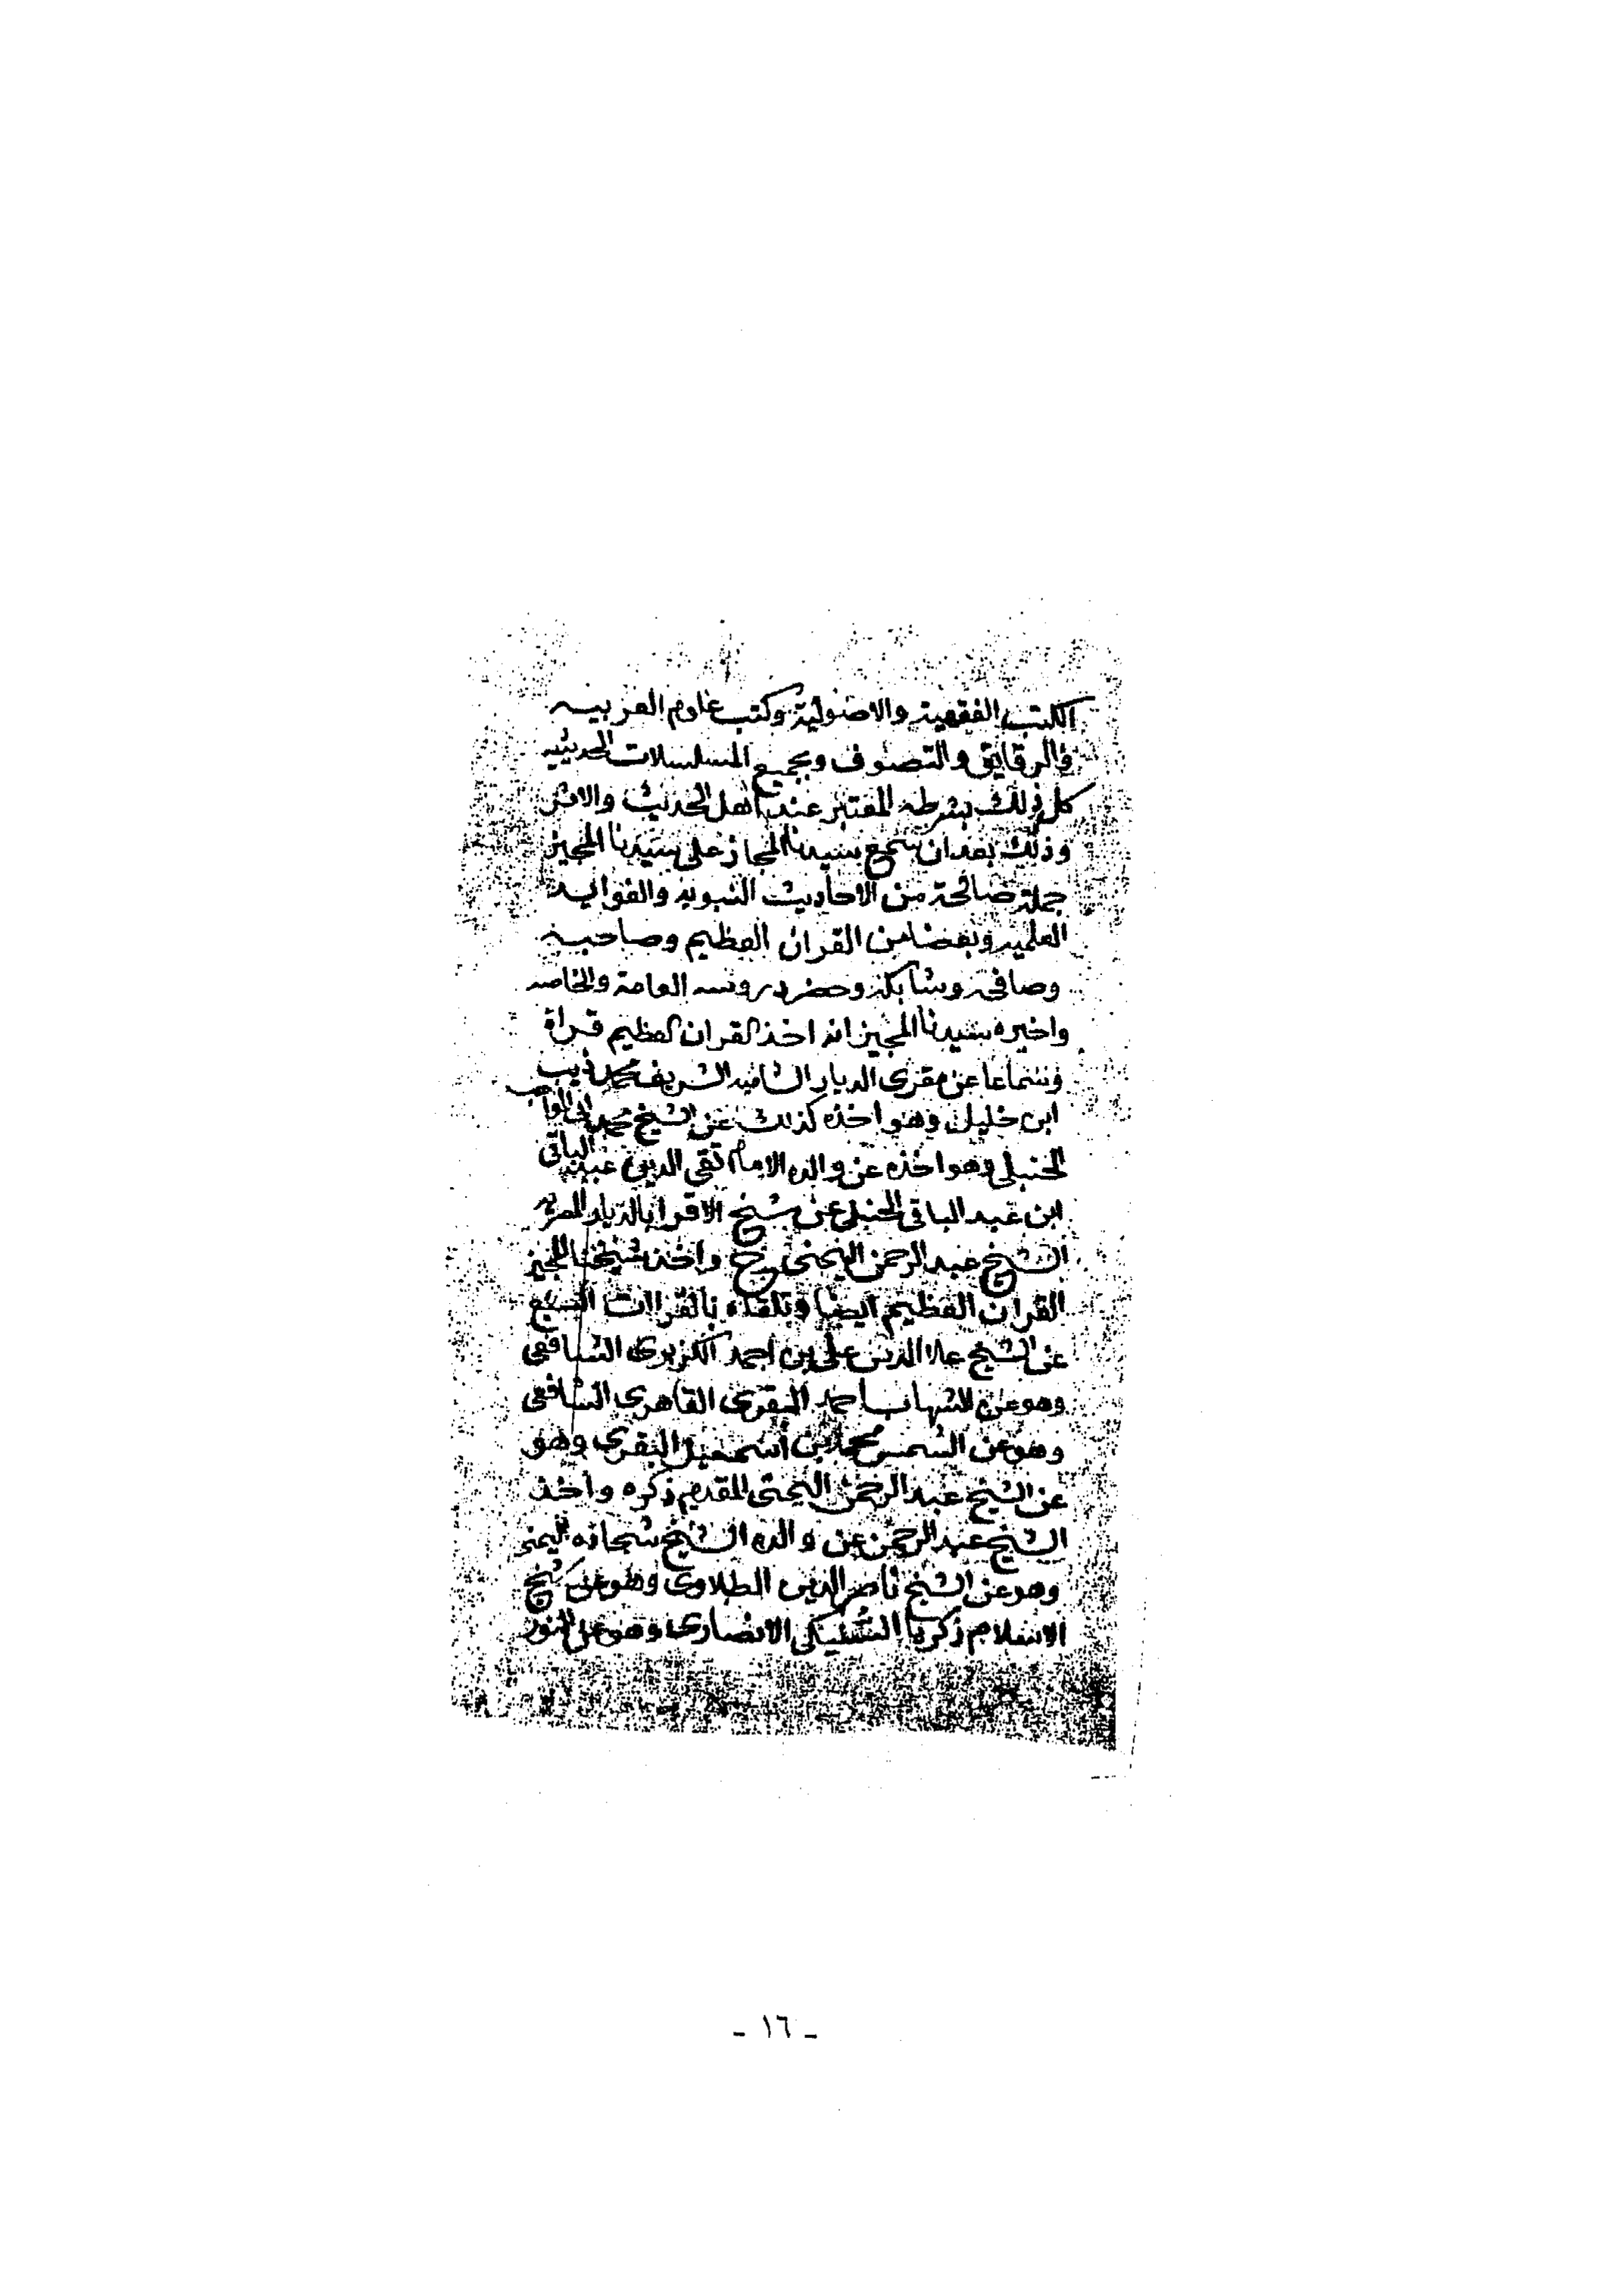 الكتب الفقهية والاصولية وكتب علوم العربيه
والرقايق والتصوف وبجميع المسلسلات الحديثيه
كل ذلك بشرطه المعتبر عند اهل الحديث والاثر
وذلك بعد ان سمع سيدنا المجاز على سيدنا المجيز
جملة صالحة من الاحاديث النبويه والفوايد
العلميه وبعضا من القران العظيم وصاحبه
وصافحه وشابكه وحضر دروسه العامة والخاصه
واخبره سيدنا المجيز انه اخذ القران العظيم قراة
وسماعا عن مقرى الديار الشاميه الشريف محمد ذيب
ابن خليل وهو اخذه كذلك عن الشيخ محمد ابى المواهب
الحنبلى وهو اخذه عن والده الامام تقى الدين عبد الباقى
ابن عبد الباقى الحنبلى عن شيخ الاقرا بالديار المصريه
الشيخ عبد الرحمن اليمنى ح واخذ شيخنا المجيز
القران العظيم ايضا وتلقاه بالقراات السبع
عن الشيخ علا الدين على بن احمد الكزبرى الشافعى
وهو عن الشهاب احمد البقرى القاهرى الشافعى
وهو عن الشمس محمد بن اسمعيل البقرى وهو
عن الشيخ عبد الرحمن اليمنى المقدم ذكره واخذ
الشيخ عبد الرحمن عن والده الشيخ شحاذه اليمنى
وهو عن الشيخ ناصر الدين الطبلاوى وهو عن شيخ
الاسلام زكريا السنيكى الانصارى وهو عن النور
- ١٦ -